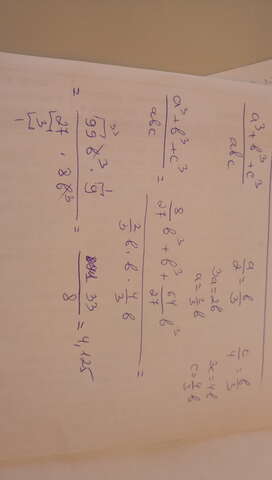 \frac{a^3+b^3+c^3}{abc} \frac{a}{2}=\frac{b}{3} \frac{c}{4}=\frac{b}{3}
3a=2b 3c=4b
a=\frac{2}{3}b c=\frac{4}{3}b
\frac{a^3+b^3+c^3}{abc} = \frac{\frac{8}{27}b^3+b^3+\frac{64}{27}b^3}{\frac{2}{3}b \cdot b \cdot \frac{4}{3}b} =
= \frac{99b^3 \cdot 9}{27 \cdot 8b^3} = \frac{33}{8} = 4,125